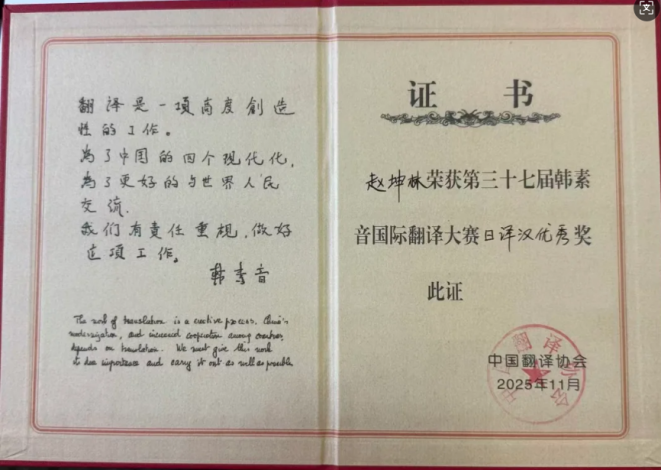 翻译是一项高度創造
性的工作。
為了中国的四个现代化,
為了更好的与世界人民
交流,
我们有責任重視,做好
这项工作。
韩素音
The work of translation is a creative process. China's
modernization, and increased cooperation among countries,
depends on translation. We must give this work
its due importance and carry it out as well as possible
证 书
赵坤林荣获第三十七届韩素
音国际翻译大赛日译汉优秀奖
此证
中国翻译协会
2025年11月